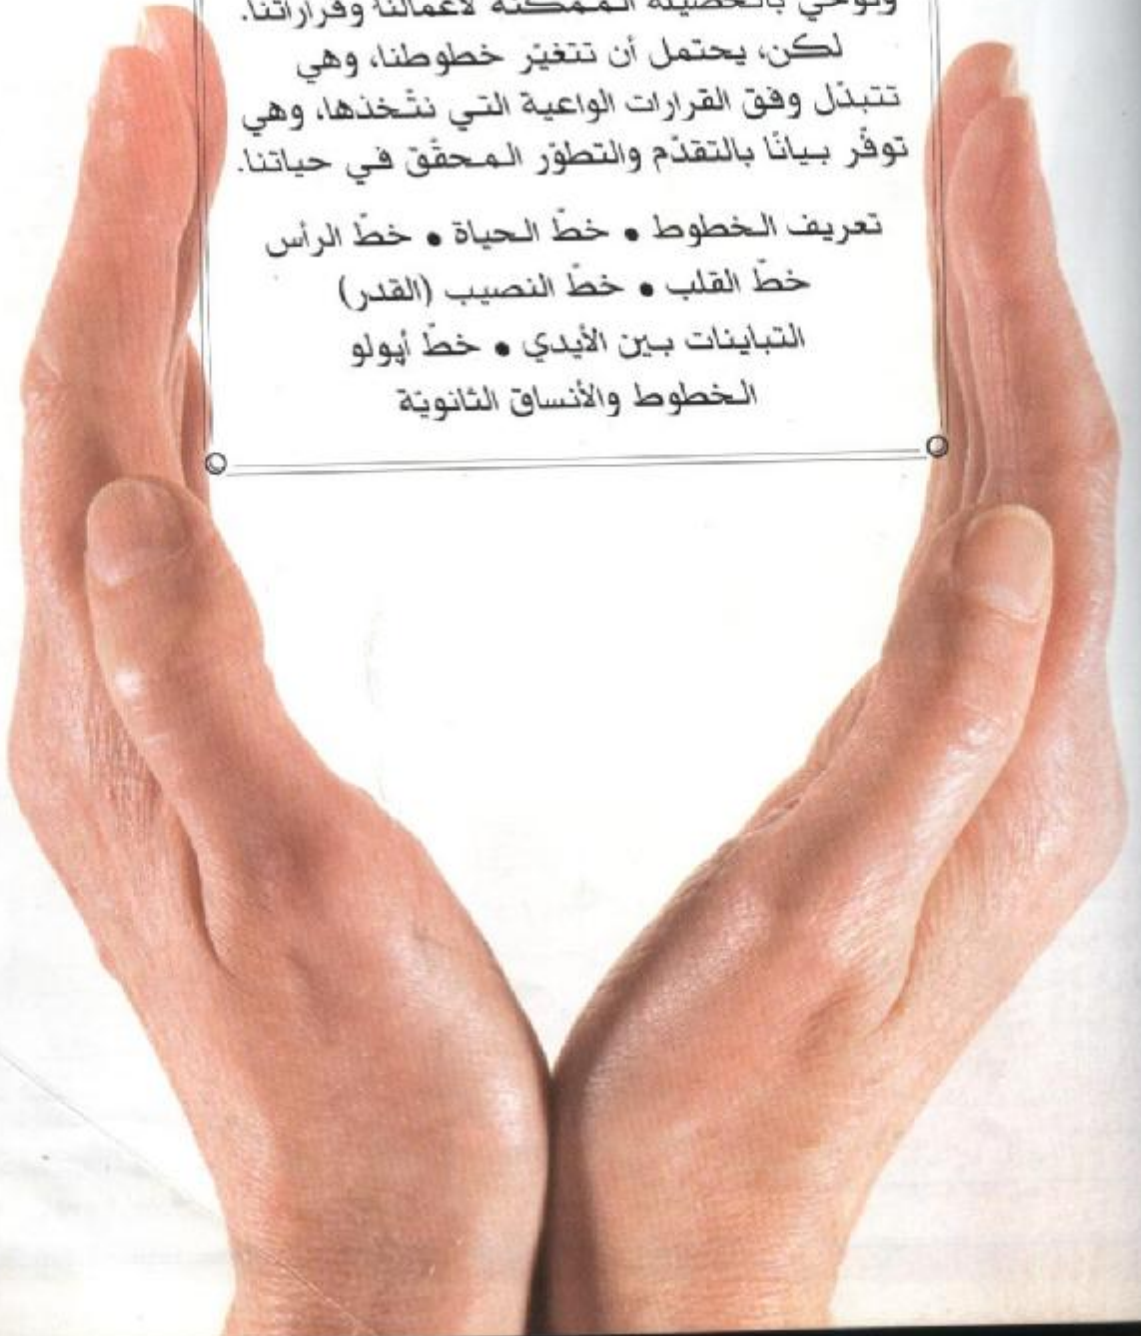 وتوحي بالحصيلة الممكنة لأعمالنا وقراراتنا.
لكن، يحتمل أن تتغيّر خطوطنا، وهي
تتبدّل وفق القرارات الواعية التي نتّخذها، وهي
توفّر بيانًا بالتقدّم والتطوّر المحقّق في حياتنا.
تعريف الخطوط • خطّ الحياة • خطّ الرأس
خطّ القلب • خطّ النصيب (القدر)
التباينات بين الأيدي • خطّ أپولو
الخطوط والأنساق الثانويّة